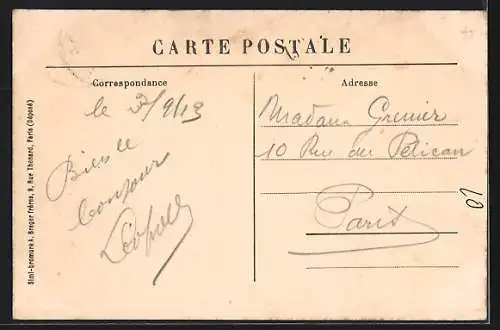 CARTE POSTALE
Correspondance
Adresse
le 3/9/13
Bien le
bonjour
Léopold
Madame Grenier
10 Rue du Pélican
Paris
10
Simi-bromure A. Breger frères, 9, Rue Thénard, Paris (Déposé)